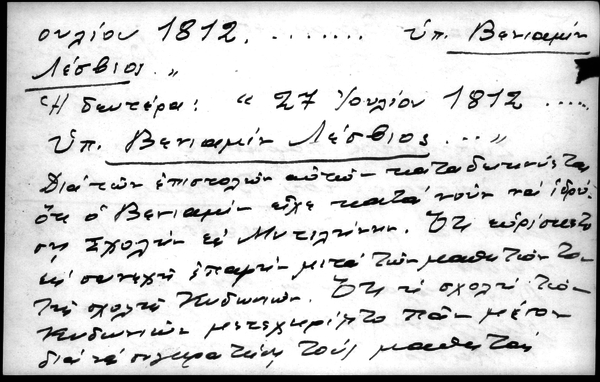 ουλίου 1812. ........ Ὑπ. Βενιαμίν
Λέσβιος."
Ἡ δευτέρα: " 27 Ἰουλίου 1812 .....
Ὑπ. Βενιαμίν Λέσβιος ... "
Διά τῶν ἐπιστολῶν αὐτῶν καταδεικνύεται
ὅτι ὁ Βενιαμίν εἶχε κατά νοῦν νά ἱδρύ-
σῃ Σχολήν ἐν Μυτιλήνῃ. Ὅτι εὑρίσκετο
εἰς συνεχῆ ἐπαφήν μετά τῶν μαθητῶν το
τῆς σχολῆς Κυδωνιῶν. Ὅτι ἡ σχολή τῶν
Κυδωνιῶν μετεχειρίζετο πᾶν μέσον
διά νά συγκρατήσῃ τούς μαθητάς